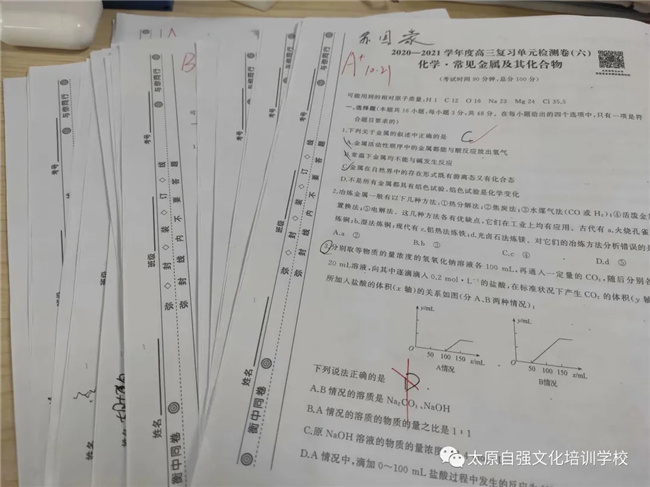 2020—2021 学年度高三复习单元检测卷(六)
化学·常见金属及其化合物
(考试时间 90 分钟,总分 100 分)
A+
10.21
可能用到的相对原子质量:H 1 C 12 O 16 Na 23 Mg 24 Cl 35.5
一、选择题(本题共 16 小题,每小题 3 分,共 48 分。在每小题给出的四个选项中,只有一项是符
合题目要求的)
1.下列关于金属的叙述中正确的是 C
A.金属活动性顺序中的金属都能与酸反应放出氢气
B.常温下金属均不能与碱发生反应
C.金属在自然界中的存在形式既有游离态又有化合态
D.不是所有金属都具有焰色试验,焰色试验是化学变化
2.冶炼金属一般有以下几种方法:①热分解法;②焦炭法;③水煤气法(CO或H₂);④活泼金
置换法;⑤电解法。这几种方法各有优缺点,它们在工业上均有应用。古代有a.火烧孔雀
炼铜;b.湿法炼铜;现代有c.铝热法炼铁;d.光卤石法炼镁。对它们的冶炼方法分析错误的是
A.a ② B.b ② C.c ④ D.d ⑤
3.分别取等物质的量浓度的氢氧化钠溶液各 100 mL,再通入一定量的 CO₂,随后分别各
20 mL溶液,向其中逐滴滴入 0.2 mol·L⁻¹的盐酸,在标准状况下产生 CO₂ 的体积(y 轴
所加入盐酸的体积(x 轴)的关系如图(分 A、B两种情况):
y/mL
O 50 100 150 x/mL
A情况
y/mL
O 50 100 150 x/mL
B情况
下列说法正确的是
A.B 情况的溶质是 Na₂CO₃、NaOH
B.A 情况的溶质的物质的量之比是 1:1
C.原 NaOH 溶液的物质的量浓度
D.A 情况中,滴加 0~100 mL 盐酸过程中发生的反应为
衡中同卷
姓名
班级
考号
弥 封 装 订 线
弥 封 线 内 不 要 答 题
与你同行
B
衡中同卷
姓名
班级
考号
弥 封 装 订 线
弥 封 线 内 不 要 答 题
与你同行
A
姓名
姓名
太原自强文化培训学校